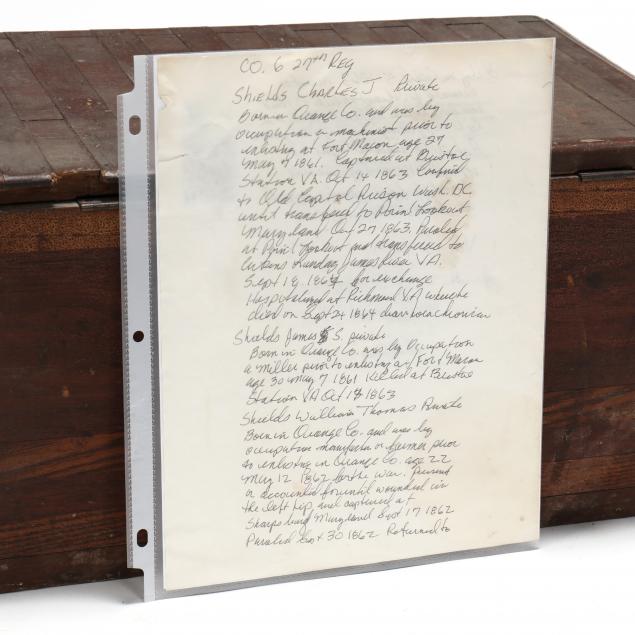 CO. G 27th Reg
Shields Charles J Private
Born in Orange Co. and was by
occupation a machinist prior to
enlisting at Fort Macon age 27
May 7 1861. Captured at Bristoe
Station VA. Oct 14 1863 Confined
to Old Capitol Prison Wash. DC
until transfered to Point Lookout
Maryland Oct 27, 1863. Paroled
at Point Lookout and transfered to
Landing James River VA.
Sept 18 1864 for exchange
Hospitalized at Richmond VA where he
died on Sept 24 1864 diarrhoea chronica
Shields James S. private
Born in Orange Co. was by Occupation
a Miller prior to enlisting at Fort Macon
age 30 May 7 1861 Killed at Bristoe
Station VA Oct 14 1863
Shields William Thomas Private
Born in Orange Co. and was by
occupation or farmer prior
to enlisting in Orange Co. age 22
May 12 1862 for the war. Present
or accounted for until wounded in
the left hip and captured at
Sharpsburg Maryland Sept 17 1862
Paroled Sept 30 1862 Returned to